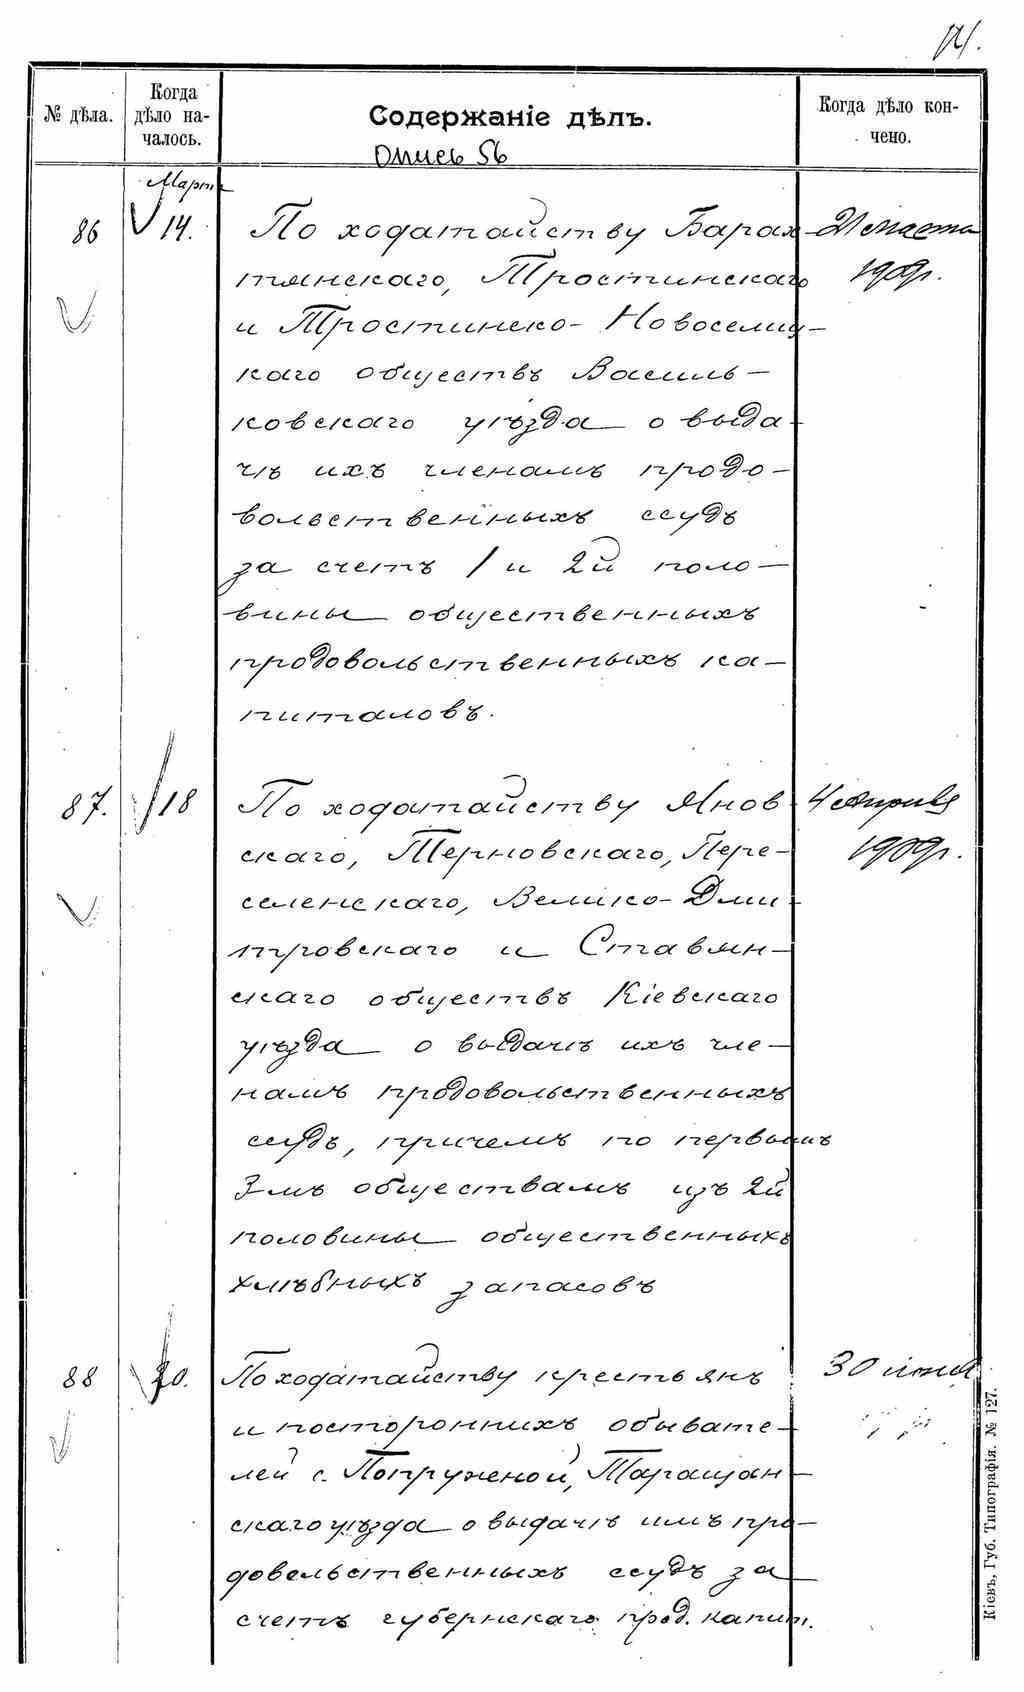 № дѣла.
Когда
дѣло на-
чалось.
Содержаніе дѣлъ.
Опись 56
Когда дѣло кон-
чено.
Март
86
14.
По ходатайству Барах-
тянскаго, Тростинскаго
и Тростинско-Новоселиц-
каго обществъ Василь-
ковскаго уѣзда о выда-
чѣ ихъ членамъ продо-
вольственныхъ ссудъ
за счетъ 1 и 2й поло-
вины общественныхъ
продовольственныхъ ка-
питаловъ.
21 марта
1909г.
87.
18
По ходатайству Янов-
скаго, Терновскаго, Пере-
селенскаго, Велико-Дми-
тровскаго и Ставян-
скаго обществъ Кіевскаго
уѣзда о выдачѣ ихъ чле-
намъ продовольственныхъ
ссудъ, причемъ по первымъ
3-мъ обществамъ изъ 2й
половины общественныхъ
хлѣбныхъ запасовъ
4 апрѣля
1909г.
88
20.
По ходатайству крестьянъ
и постороннихъ обывате-
лей с. Попруженой, Таращан-
скаго уѣзда о выдачѣ имъ про-
довольственныхъ ссудъ за
счетъ губернскаго прод. капит.
30 іюня
Кіевъ, Губ. Типографія. № 127.